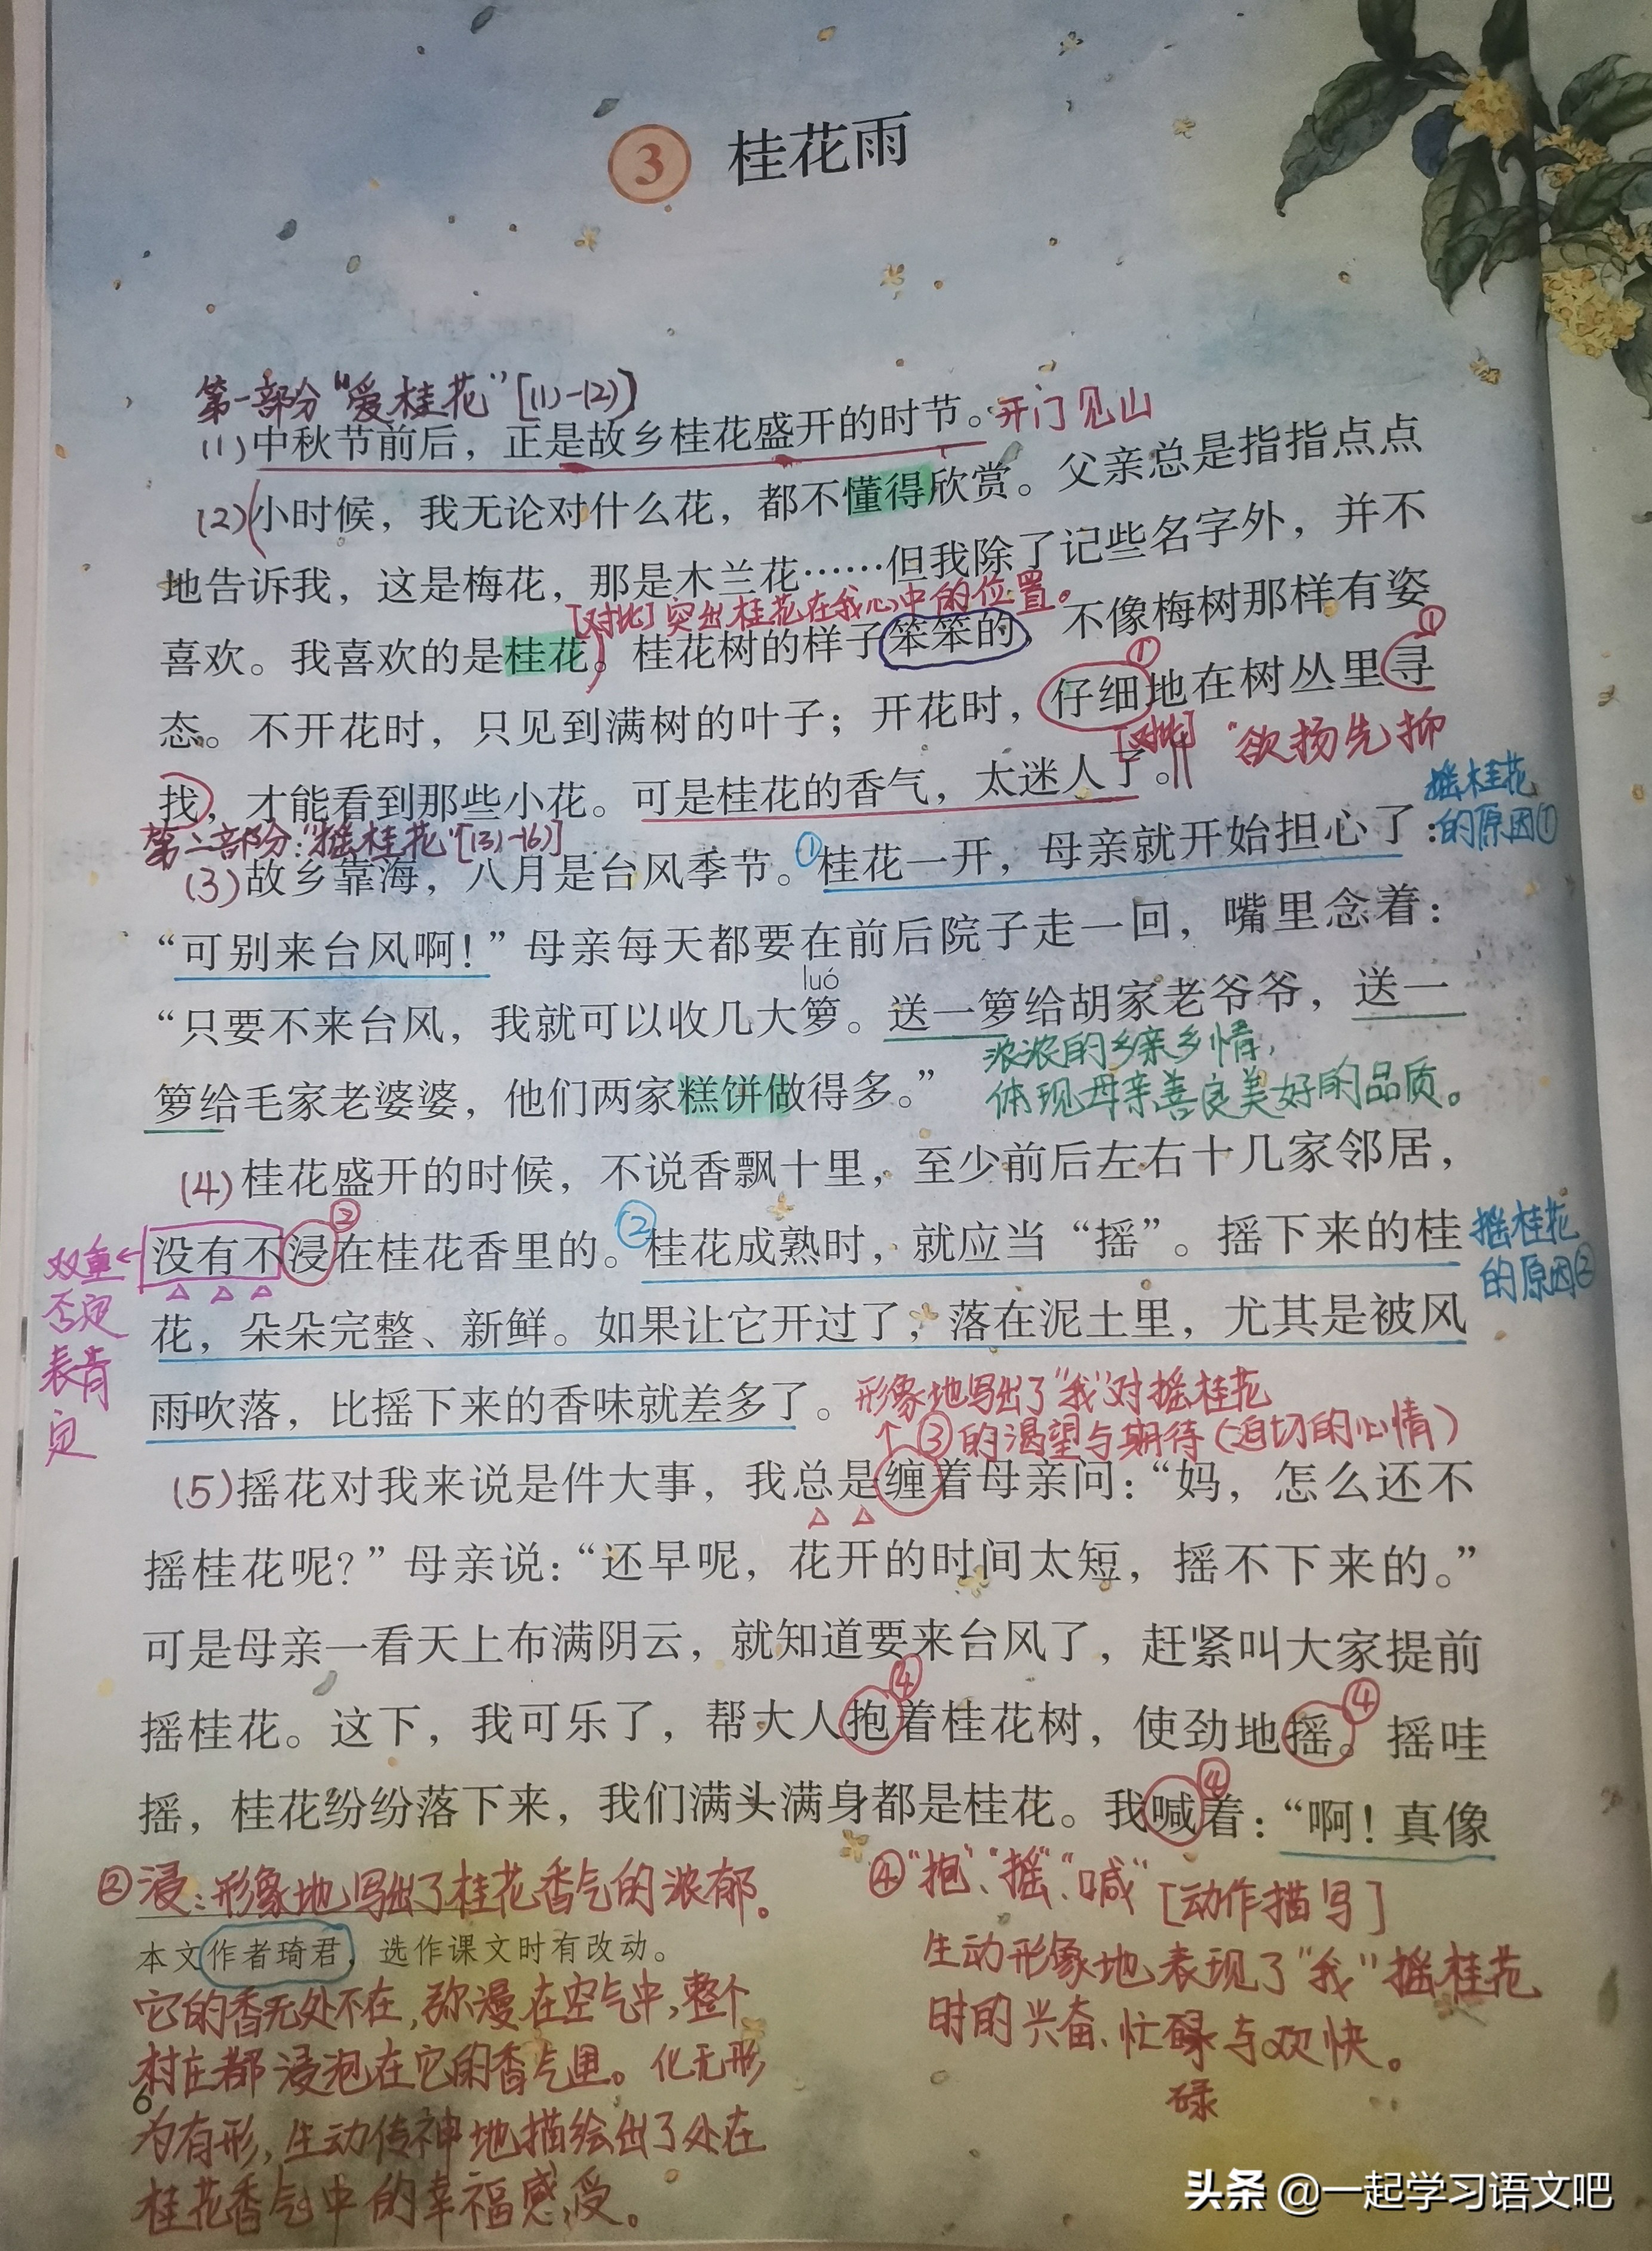 3 桂花雨
第一部分“爱桂花”[(1)-(2)]
(1)中秋节前后，正是故乡桂花盛开的时节。开门见山
(2)小时候，我无论对什么花，都不懂得欣赏。父亲总是指指点点
地告诉我，这是梅花，那是木兰花……但我除了记些名字外，并不
[对比]突出桂花在我心中的位置。
喜欢。我喜欢的是桂花。桂花树的样子笨笨的，不像梅树那样有姿
①
①
态。不开花时，只见到满树的叶子；开花时，仔细地在树丛里寻
[对比] “欲扬先抑
找，才能看到那些小花。可是桂花的香气，太迷人了。
摇桂花
的原因①
第二部分：“摇桂花”[(3)-(6)]
(3)故乡靠海，八月是台风季节。①桂花一开，母亲就开始担心了：
“可别来台风啊！”母亲每天都要在前后院子走一回，嘴里念着：
luó
“只要不来台风，我就可以收几大箩。送一箩给胡家老爷爷，送一
浓浓的乡亲乡情，
体现母亲善良美好的品质。
箩给毛家老婆婆，他们两家糕饼做得多。”
(4)桂花盛开的时候，不说香飘十里，至少前后左右十几家邻居，
②
双重
否定
表肯
定
没有不浸在桂花香里的。②桂花成熟时，就应当“摇”。摇下来的桂
摇桂花
的原因②
花，朵朵完整、新鲜。如果让它开过了，落在泥土里，尤其是被风
雨吹落，比摇下来的香味就差多了。
形象地写出了“我”对摇桂花
↑③的渴望与期待（迫切的心情）
(5)摇花对我来说是件大事，我总是缠着母亲问：“妈，怎么还不
摇桂花呢？”母亲说：“还早呢，花开的时间太短，摇不下来的。”
可是母亲一看天上布满阴云，就知道要来台风了，赶紧叫大家提前
④
④
摇桂花。这下，我可乐了，帮大人抱着桂花树，使劲地摇。摇哇
④
摇，桂花纷纷落下来，我们满头满身都是桂花。我喊着：“啊！真像
②浸：形象地写出了桂花香气的浓郁。
本文作者琦君，选作课文时有改动。
它的香无处不在，弥漫在空气中，整个
村庄都浸泡在它的香气里。化无形
6
为有形，生动传神地描绘出了处在
桂花香气中的幸福感受。
④“抱”、“摇”、“喊”[动作描写]
生动形象地表现了“我”摇桂花
时的兴奋、忙碌与欢快。
碌
头条 @一起学习语文吧